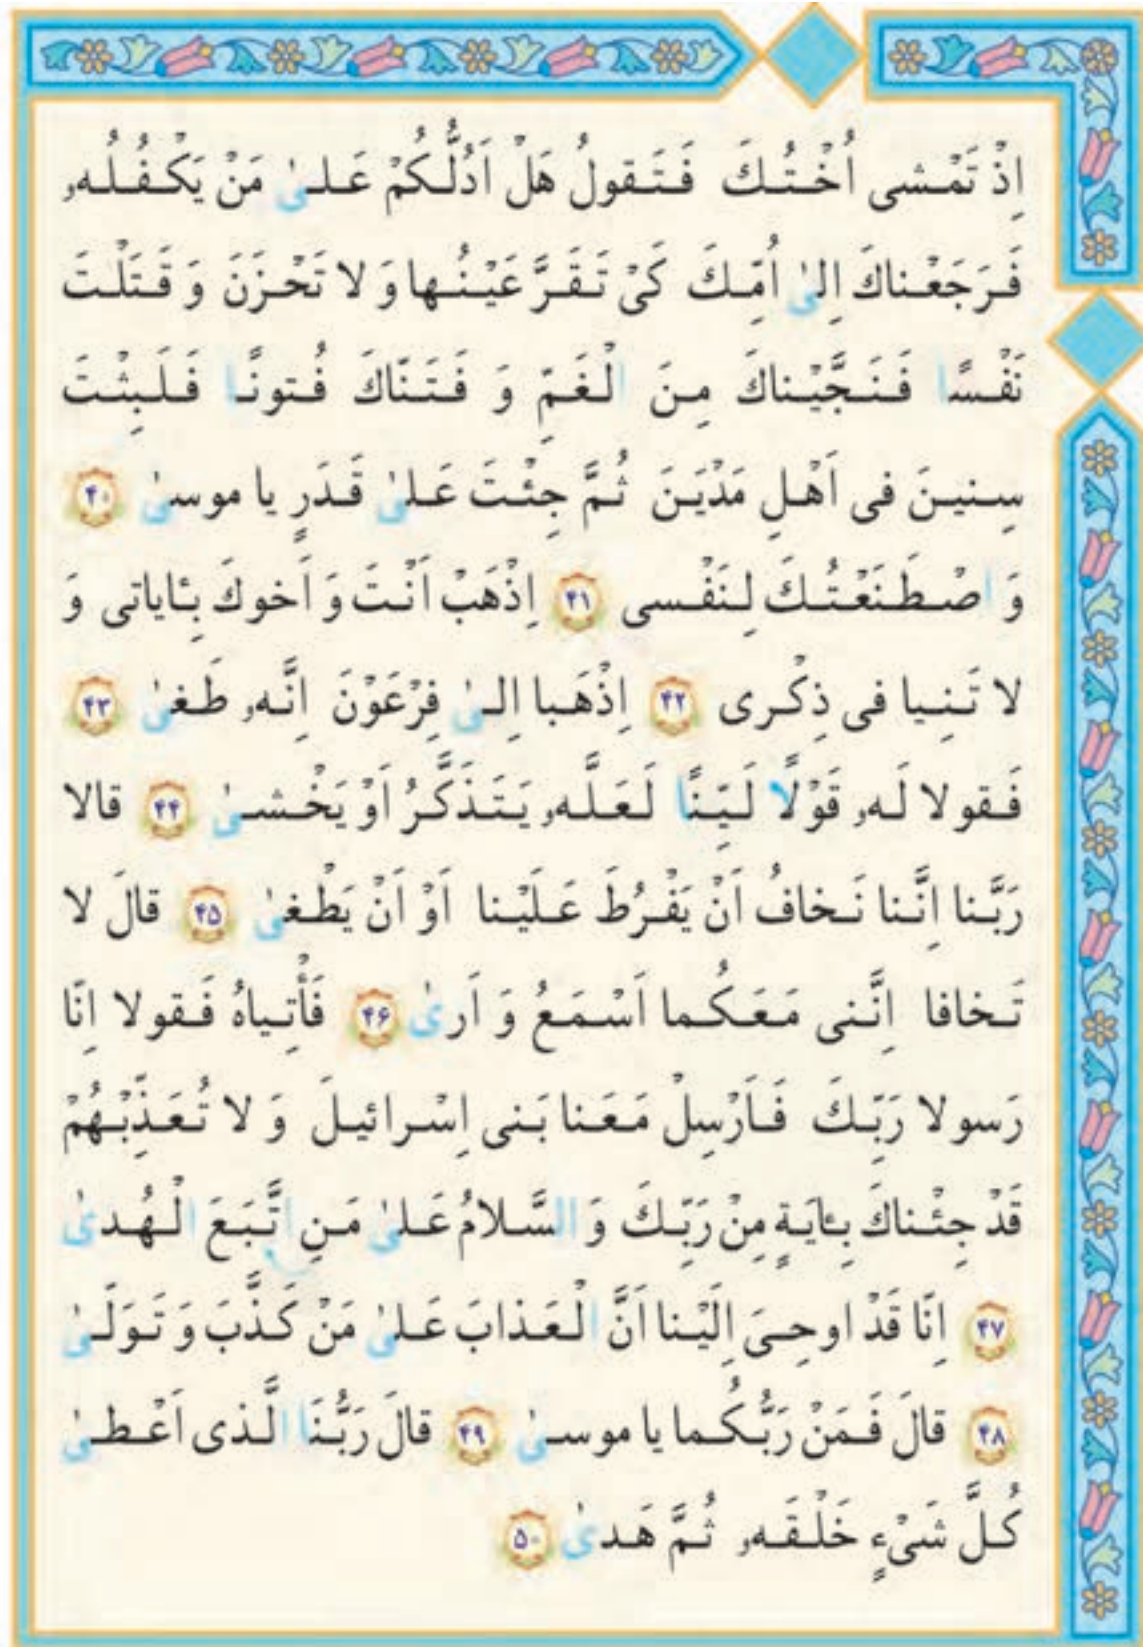 اِذْ تَمْشی اُخْتُكَ فَتَقولُ هَلْ اَدُلُّكُمْ عَلىٰ مَنْ يَكْفُلُهۥ
فَرَجَعْناكَ اِلىٰ اُمِّكَ كَیْ تَقَرَّ عَيْنُها وَ لا تَحْزَنَ وَ قَتَلْتَ
نَفْسًا فَنَجَّيْناكَ مِنَ الْغَمِّ وَ فَتَنّاكَ فُتونًا فَلَبِثْتَ
سِنينَ فی اَهْلِ مَدْيَنَ ثُمَّ جِئْتَ عَلىٰ قَدَرٍ يا موسىٰ ۴۰
وَ اصْطَنَعْتُكَ لِنَفْسی ۴۱ اِذْهَبْ اَنْتَ وَ اَخوكَ بِـٔاياتی وَ
لا تَنِيا فی ذِكْری ۴۲ اِذْهَبا اِلىٰ فِرْعَوْنَ اِنَّهۥ طَغىٰ ۴۳
فَقولا لَهۥ قَوْلًا لَيِّنًا لَعَلَّهۥ يَتَذَكَّرُ اَوْ يَخْشىٰ ۴۴ قالا
رَبَّنا اِنَّنا نَخافُ اَنْ يَفْرُطَ عَلَيْنا اَوْ اَنْ يَطْغىٰ ۴۵ قالَ لا
تَخافا اِنَّنی مَعَكُما اَسْمَعُ وَ اَرىٰ ۴۶ فَأْتِياهُ فَقولا اِنّا
رَسولا رَبِّكَ فَاَرْسِلْ مَعَنا بَنی اِسْرائيلَ وَ لا تُعَذِّبْهُمْ
قَدْ جِئْناكَ بِـٔايَةٍ مِنْ رَبِّكَ وَ السَّلامُ عَلىٰ مَنِ اتَّبَعَ الْهُدىٰ
۴۷ اِنّا قَدْ اوحِیَ اِلَيْنا اَنَّ الْعَذابَ عَلىٰ مَنْ كَذَّبَ وَ تَوَلّىٰ
۴۸ قالَ فَمَنْ رَبُّكُما يا موسىٰ ۴۹ قالَ رَبُّنَا الَّذی اَعْطىٰ
كُلَّ شَیْءٍ خَلْقَهۥ ثُمَّ هَدىٰ ۵۰